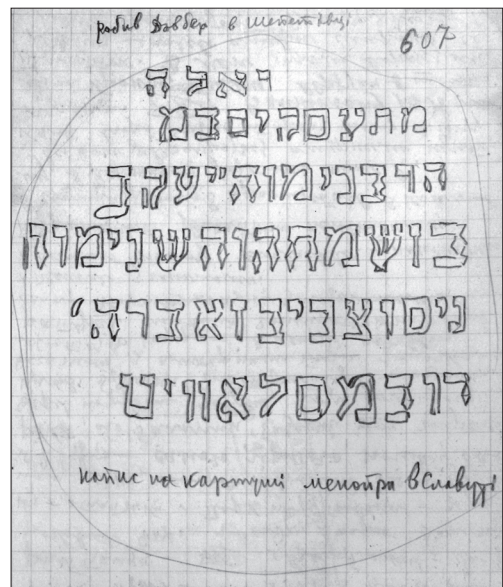 робив Давбер в Шепетівці
607
ואלה
מתעסקים במ
הרבנימוהייעקב
בושמחהוהשנימוה
ניסוצביבזאברה׳
דובמסלאוויט
напис на картуші менойра в Славуті